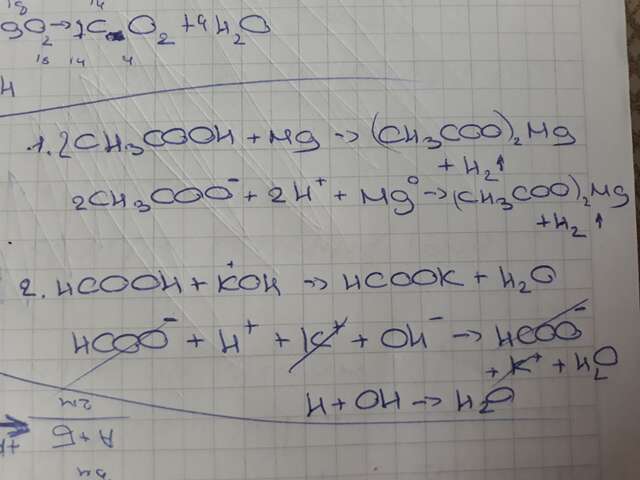 18 14
9O₂ → 7CO₂ + 4H₂O
18 14 4
H
1. 2CH₃COOH + Mg → (CH₃COO)₂Mg
+ H₂↑
2CH₃COO⁻ + 2H⁺ + Mg⁰ → (CH₃COO)₂Mg
+ H₂↑
2. HCOOH + KOH → HCOOK + H₂O
HCOO⁻ + H⁺ + K⁺ + OH⁻ → HCOO⁻
+ K⁺ + H₂O
H + OH → H₂O